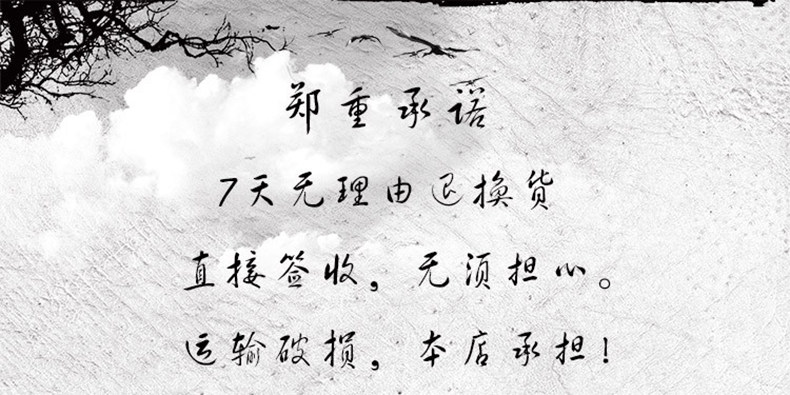 郑重承诺
7天无理由退换货
直接签收，无须担心。
运输破损，本店承担！